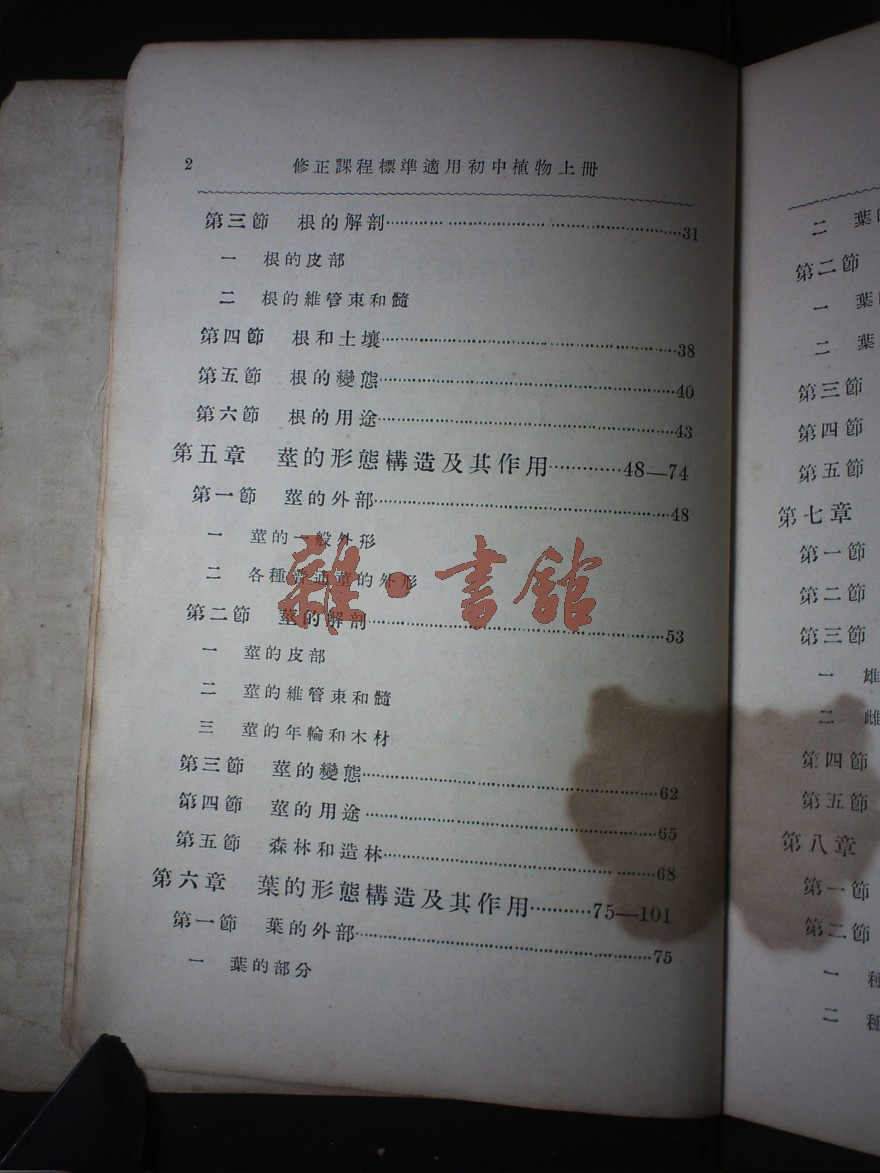 2 修正課程標準適用初中植物上冊
第三節 根的解剖……31
一 根的皮部
二 根的維管束和髓
第四節 根和土壤……38
第五節 根的變態……40
第六節 根的用途……43
第五章 莖的形態構造及其作用……48—74
第一節 莖的外部……48
一 莖的一般外形
二 各種普通莖的外形
第二節 莖的解剖……53
一 莖的皮部
二 莖的維管束和髓
三 莖的年輪和木材
第三節 莖的變態……62
第四節 莖的用途……65
第五節 森林和造林……68
第六章 葉的形態構造及其作用……75—101
第一節 葉的外部……75
一 葉的部分
雜·書館
二 葉
第二節
一 葉
二 葉
第三節
第四節
第五節
第七章
第一節
第二節
第三節
一 雄
二 雌
第四節
第五節
第八章
第一節
第二節
一 種
二 種